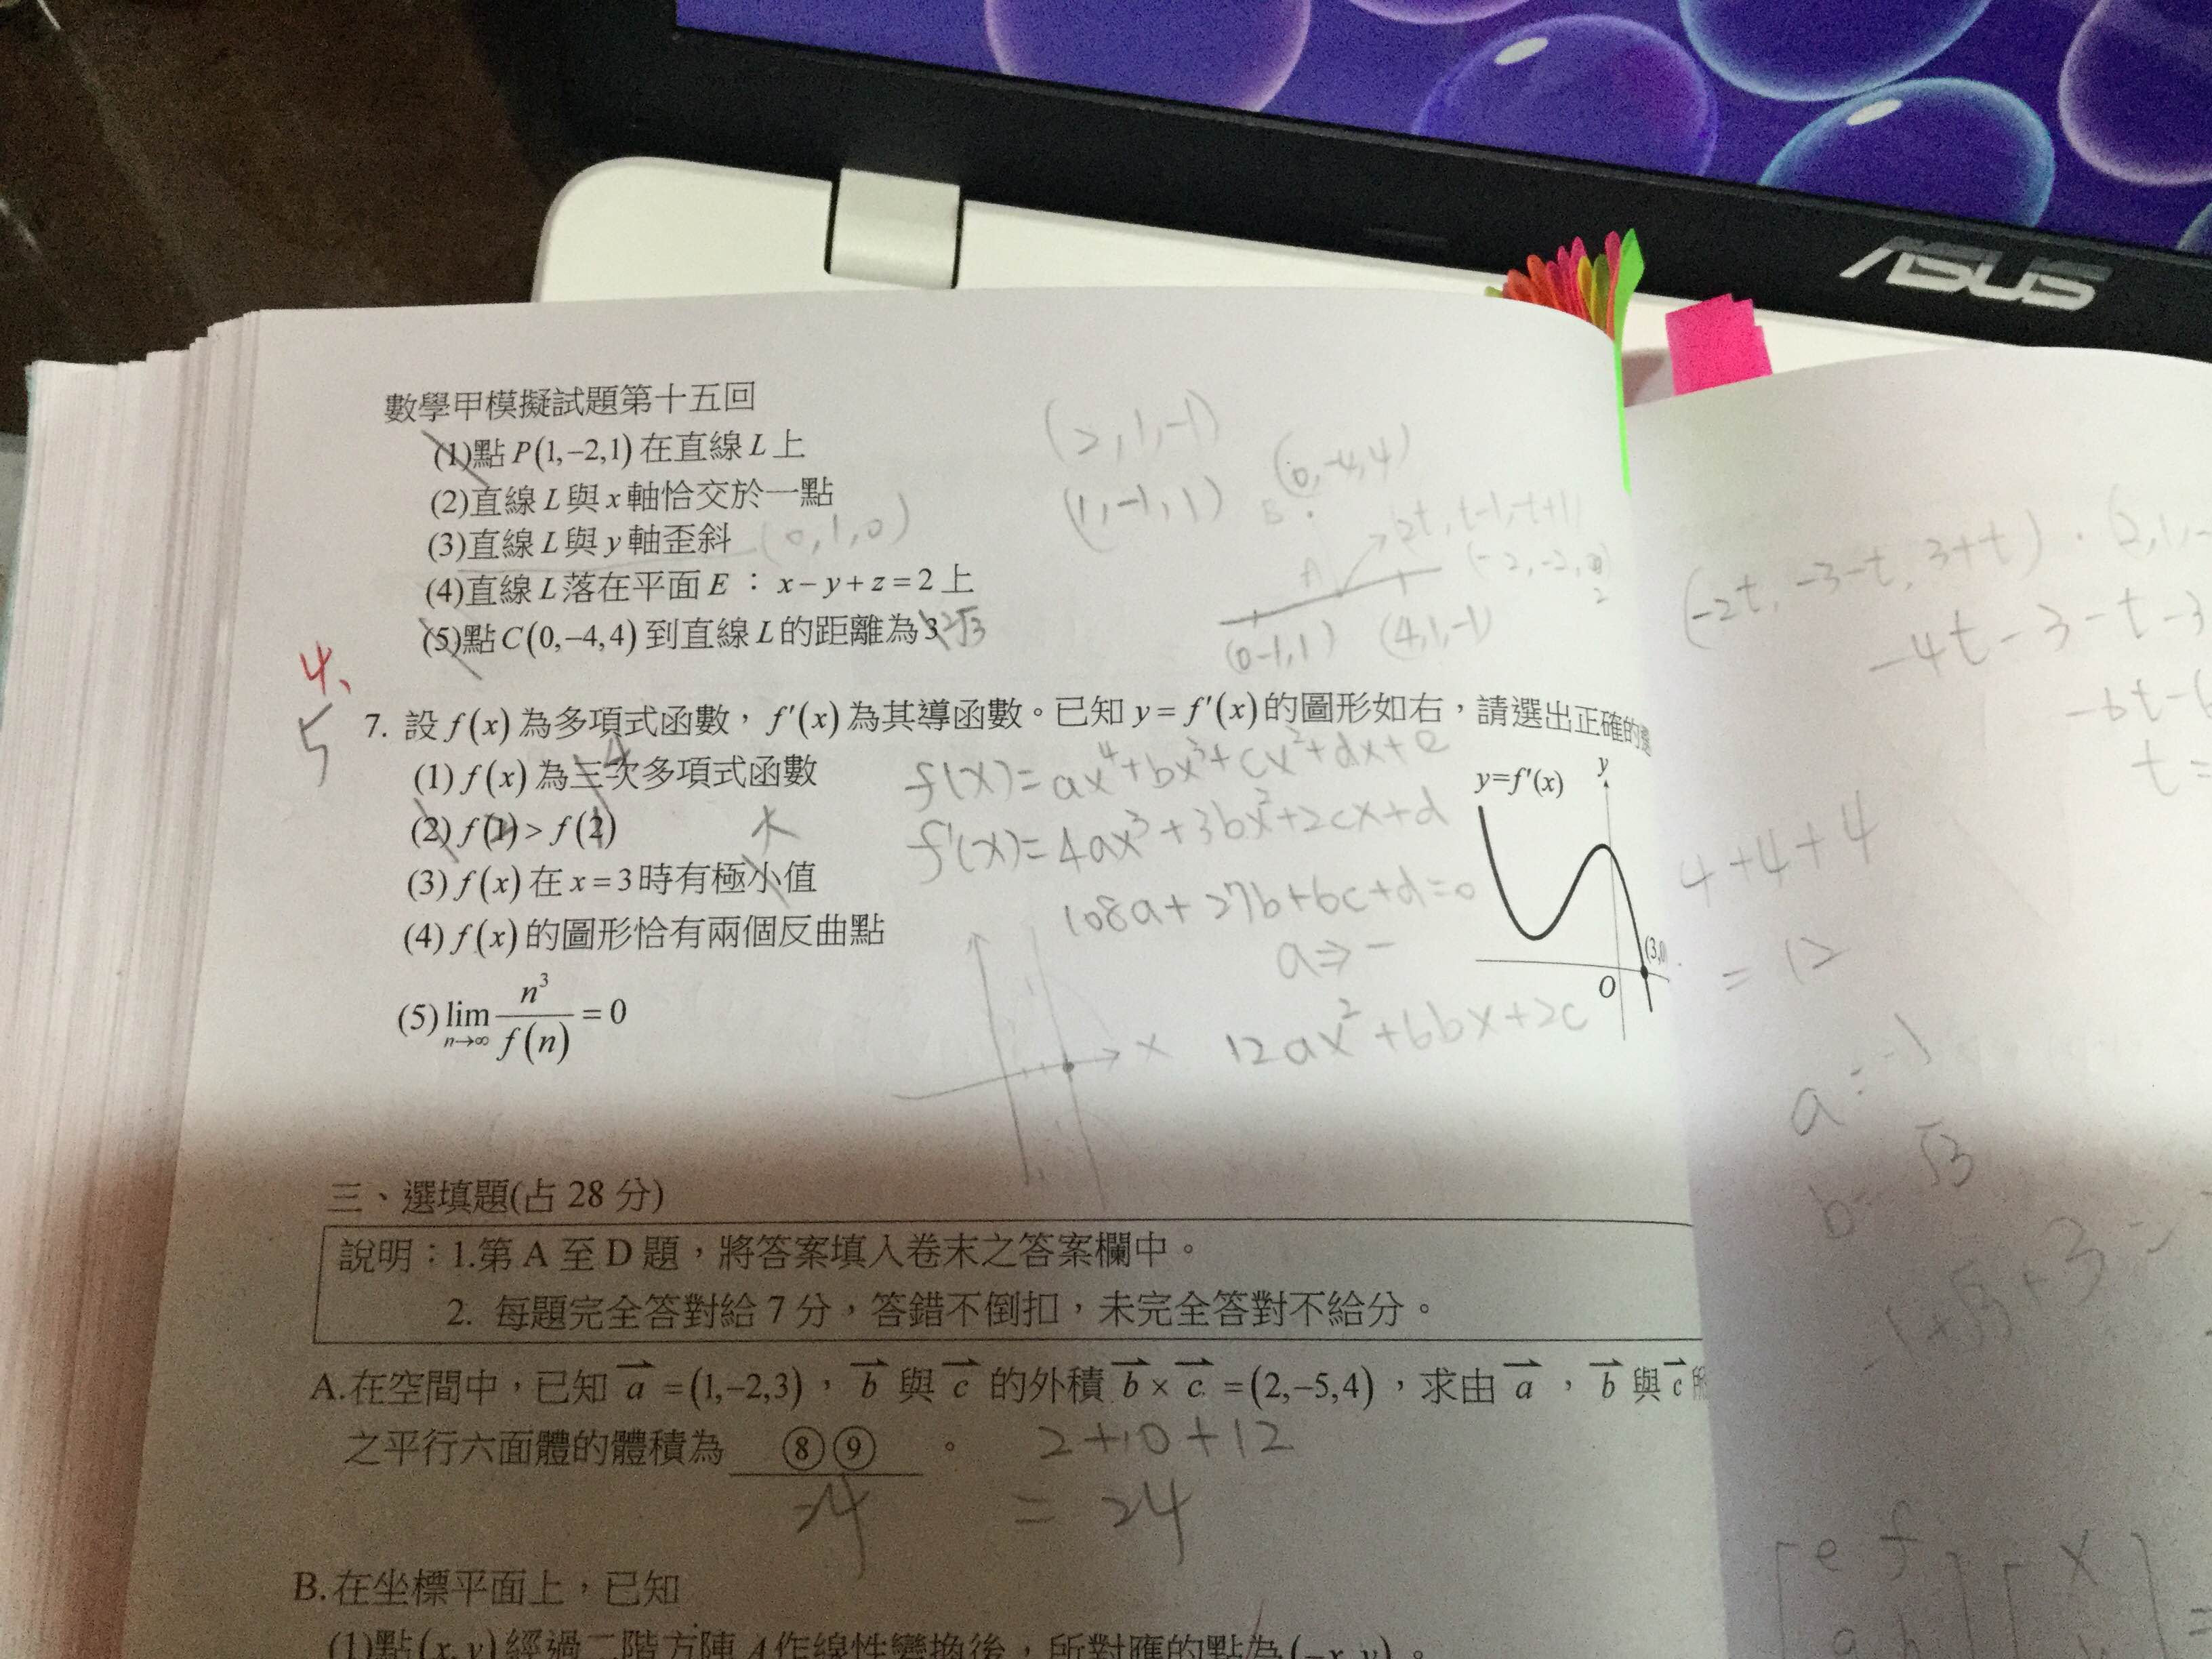 ASUS
數學甲模擬試題第十五回
(1)點P(1,−2,1)在直線L上
(2)直線L與x軸恰交於一點
(3)直線L與y軸歪斜 (0,1,0)
(4)直線L落在平面E：x−y+z=2上
(5)點C(0,−4,4)到直線L的距離為3 2√3
(2,1,-1)
(1,-1,1)
(0,-4,4)
2t, t-1, -t+1
(0-1,1) (4,1,-1)
(-2t, -3-t, 3+t)·(2,1,-
-4t-3-t-3
4、
5
7. 設f(x)為多項式函數，f′(x)為其導函數。已知y=f′(x)的圖形如右，請選出正確的
(1) f(x)為三次多項式函數
4
(2) f(1)>f(2)
(3) f(x)在x=3時有極小值
大
(4) f(x)的圖形恰有兩個反曲點
(5) lim n→∞ n³/f(n) = 0
f(x)=ax⁴+bx³+cx²+dx+e
f'(x)=4ax³+3bx²+2cx+d
108a+27b+6c+d=0
a⇒-
12ax²+6bx+2c
x
y=f′(x)
y
(3,0
O
4+4+4
=12
a=-1
√3
b=
三、選填題(占28分)
說明：1.第A至D題，將答案填入卷末之答案欄中。
2. 每題完全答對給7分，答錯不倒扣，未完全答對不給分。
A.在空間中，已知 a⃗ =(1,−2,3)， b⃗ 與 c⃗ 的外積 b⃗ × c⃗ =(2,−5,4)，求由 a⃗ ， b⃗ 與 c⃗
之平行六面體的體積為 ⑧⑨ 。
2+10+12
=24
24
B.在坐標平面上，已知
(1)點(x,y)經過二階方陣A作線性變換後，所對應的點為(−x,y)。
e f
x